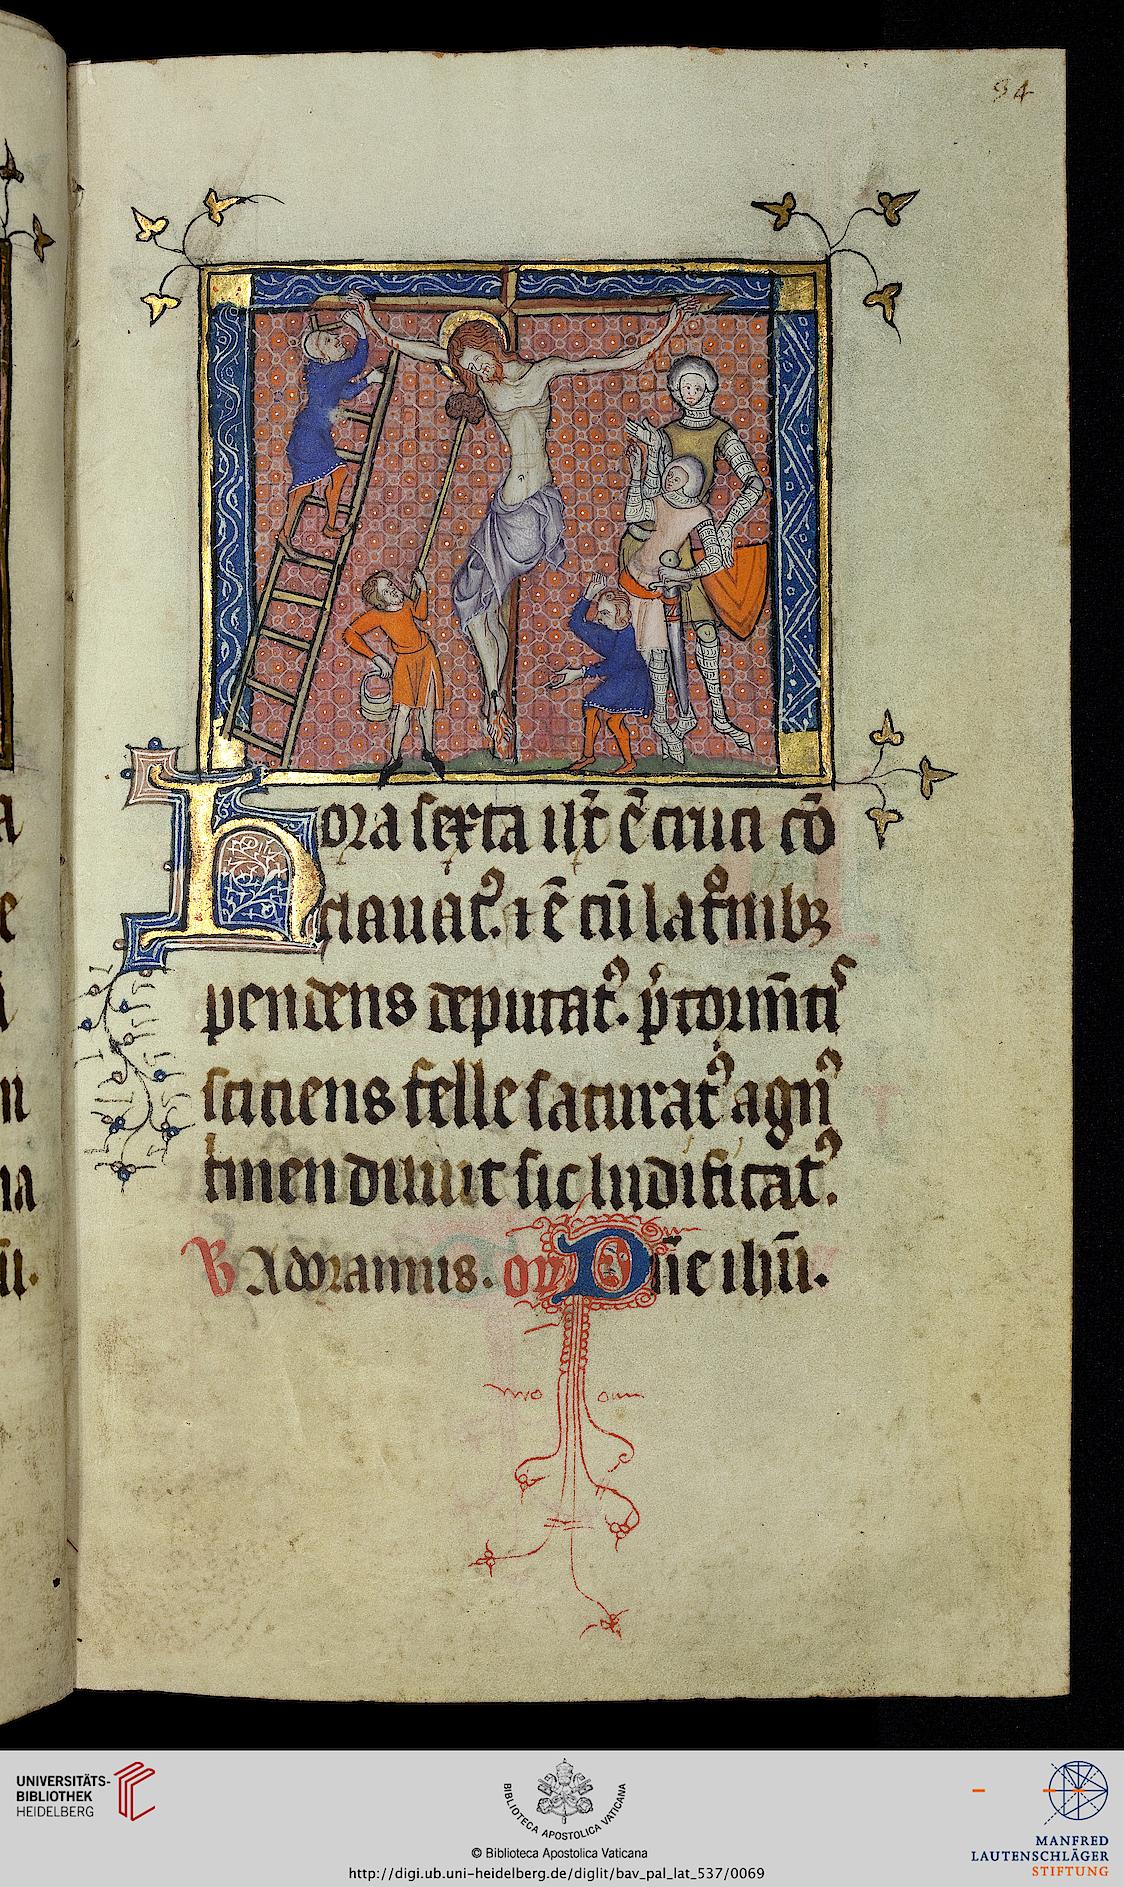 34
hora sexta ih̅c ē cruci cō
clauatꝰ. ⁊ ē cū latͦnibꝫ
pendens deputatꝰ. p̄ tormn̄tis
scitiens felle saturatꝰ agnꝰ
crimen diluit sic ludificatꝰ.
V Adoramus. or̄ Dn̄e ihū.
UNIVERSITÄTS-
BIBLIOTHEK
HEIDELBERG
BIBLIOTECA APOSTOLICA VATICANA
© Biblioteca Apostolica Vaticana
http://digi.ub.uni-heidelberg.de/diglit/bav_pal_lat_537/0069
MANFRED
LAUTENSCHLÄGER
STIFTUNG